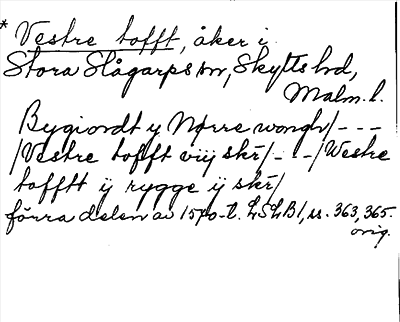 * Vestre tofft, åker i
Stora Slågarps sn, Skytts hd,
Malm. l.
Bygiordt y Nørre wongh/ - - -
/Vestre tofft viij skr/ - - - /Westre
tofftt ij rygge ij skr/
förra delen av 1570-t. LSLB1, ss. 363, 365.
orig.